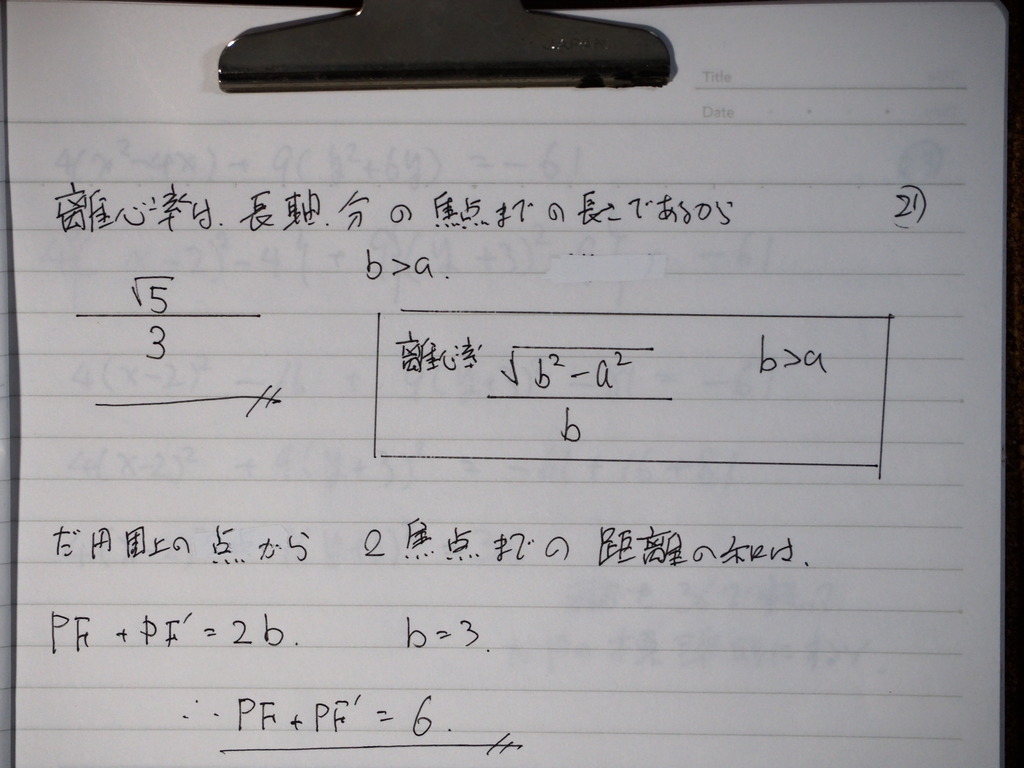 JAPAN
Title
Date
離心率は、長軸、分の焦点までの長さであるから
21)
b>a.
√5
3
離心率 √b²-a² b>a
b
だ円周上の点から 2焦点までの距離の和は、
PF+PF'=2b. b=3.
∴ PF+PF'=6.